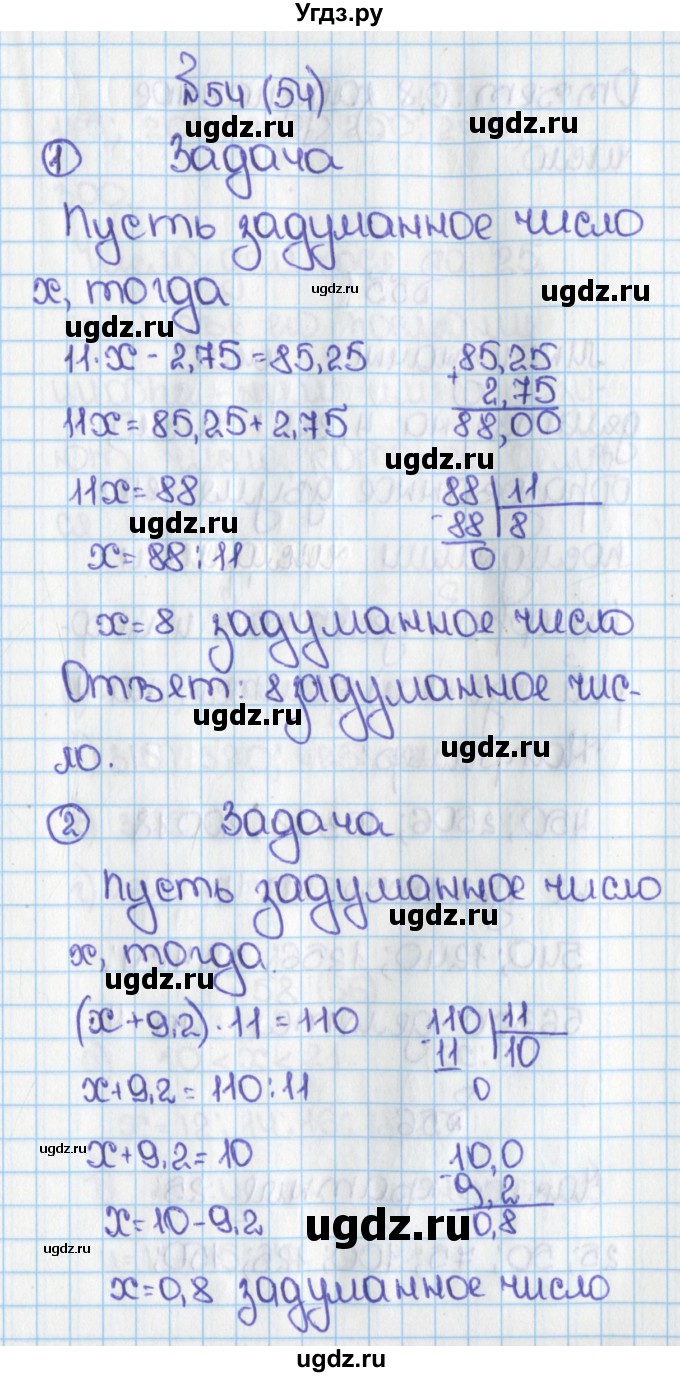 Угдз.ру
№54 (54)
ugdz.ru
ugdz.ru
① Задача
Пусть задуманное число
x, тогда
ugdz.ru
ugdz.ru
ugdz.ru
11·x - 2,75 = 85,25
85,25
+
2,75
11x = 85,25 + 2,75
88,00
ugdz.ru
11x = 88
88 | 11
ugdz.ru
-88 | 8
x = 88 : 11
0
x = 8 задуманное число
Ответ: 8 задуманное чис-
ugdz.ru
ло.
ugdz.ru
② Задача
Пусть задуманное число
ugdz.ru
x, тогда
ugdz.ru
(x + 9,2) · 11 = 110
110 | 11
-11 | 10
x + 9,2 = 110 : 11
0
ugdz.ru
x + 9,2 = 10
10,0
-9,2
x = 10 - 9,2
0,8
ugdz.ru
ugdz.ru
x = 0,8 задуманное число
ugdz.ru